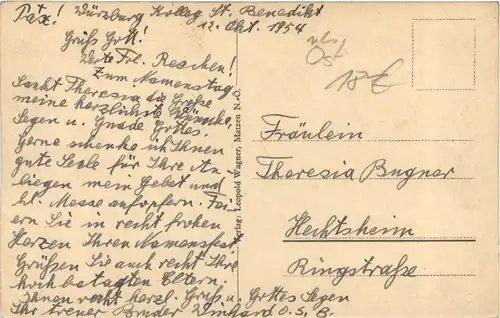 Pax! Würzburg Kolleg St. Benedikt
12. Okt. 1954
Grüß Gott!
Werte Frl. Reschen!
Zum Namenstag
Sankt Theresia die Große
meine herzlichste Wünsche,
Segen u. Gnade Gottes.
Gerne schenke ich Ihnen
gute Seele für Ihre An-
liegen mein Gebet und
hl. Messe aufopfern. Fei-
ern Sie in recht frohen
Herzen Ihren Namensfest
Grüßen Sie auch recht Ihre
hochbetagten Eltern.
Ihnen recht herzl. Gruß u. Gottes Segen
Ihr treuer Bruder O. S. B.
Verlag: Leopold Wagner, Matzen N.-Ö.
Öst
18 €
Fräulein
Theresia Bugner
Hechtsheim
Ringstraße